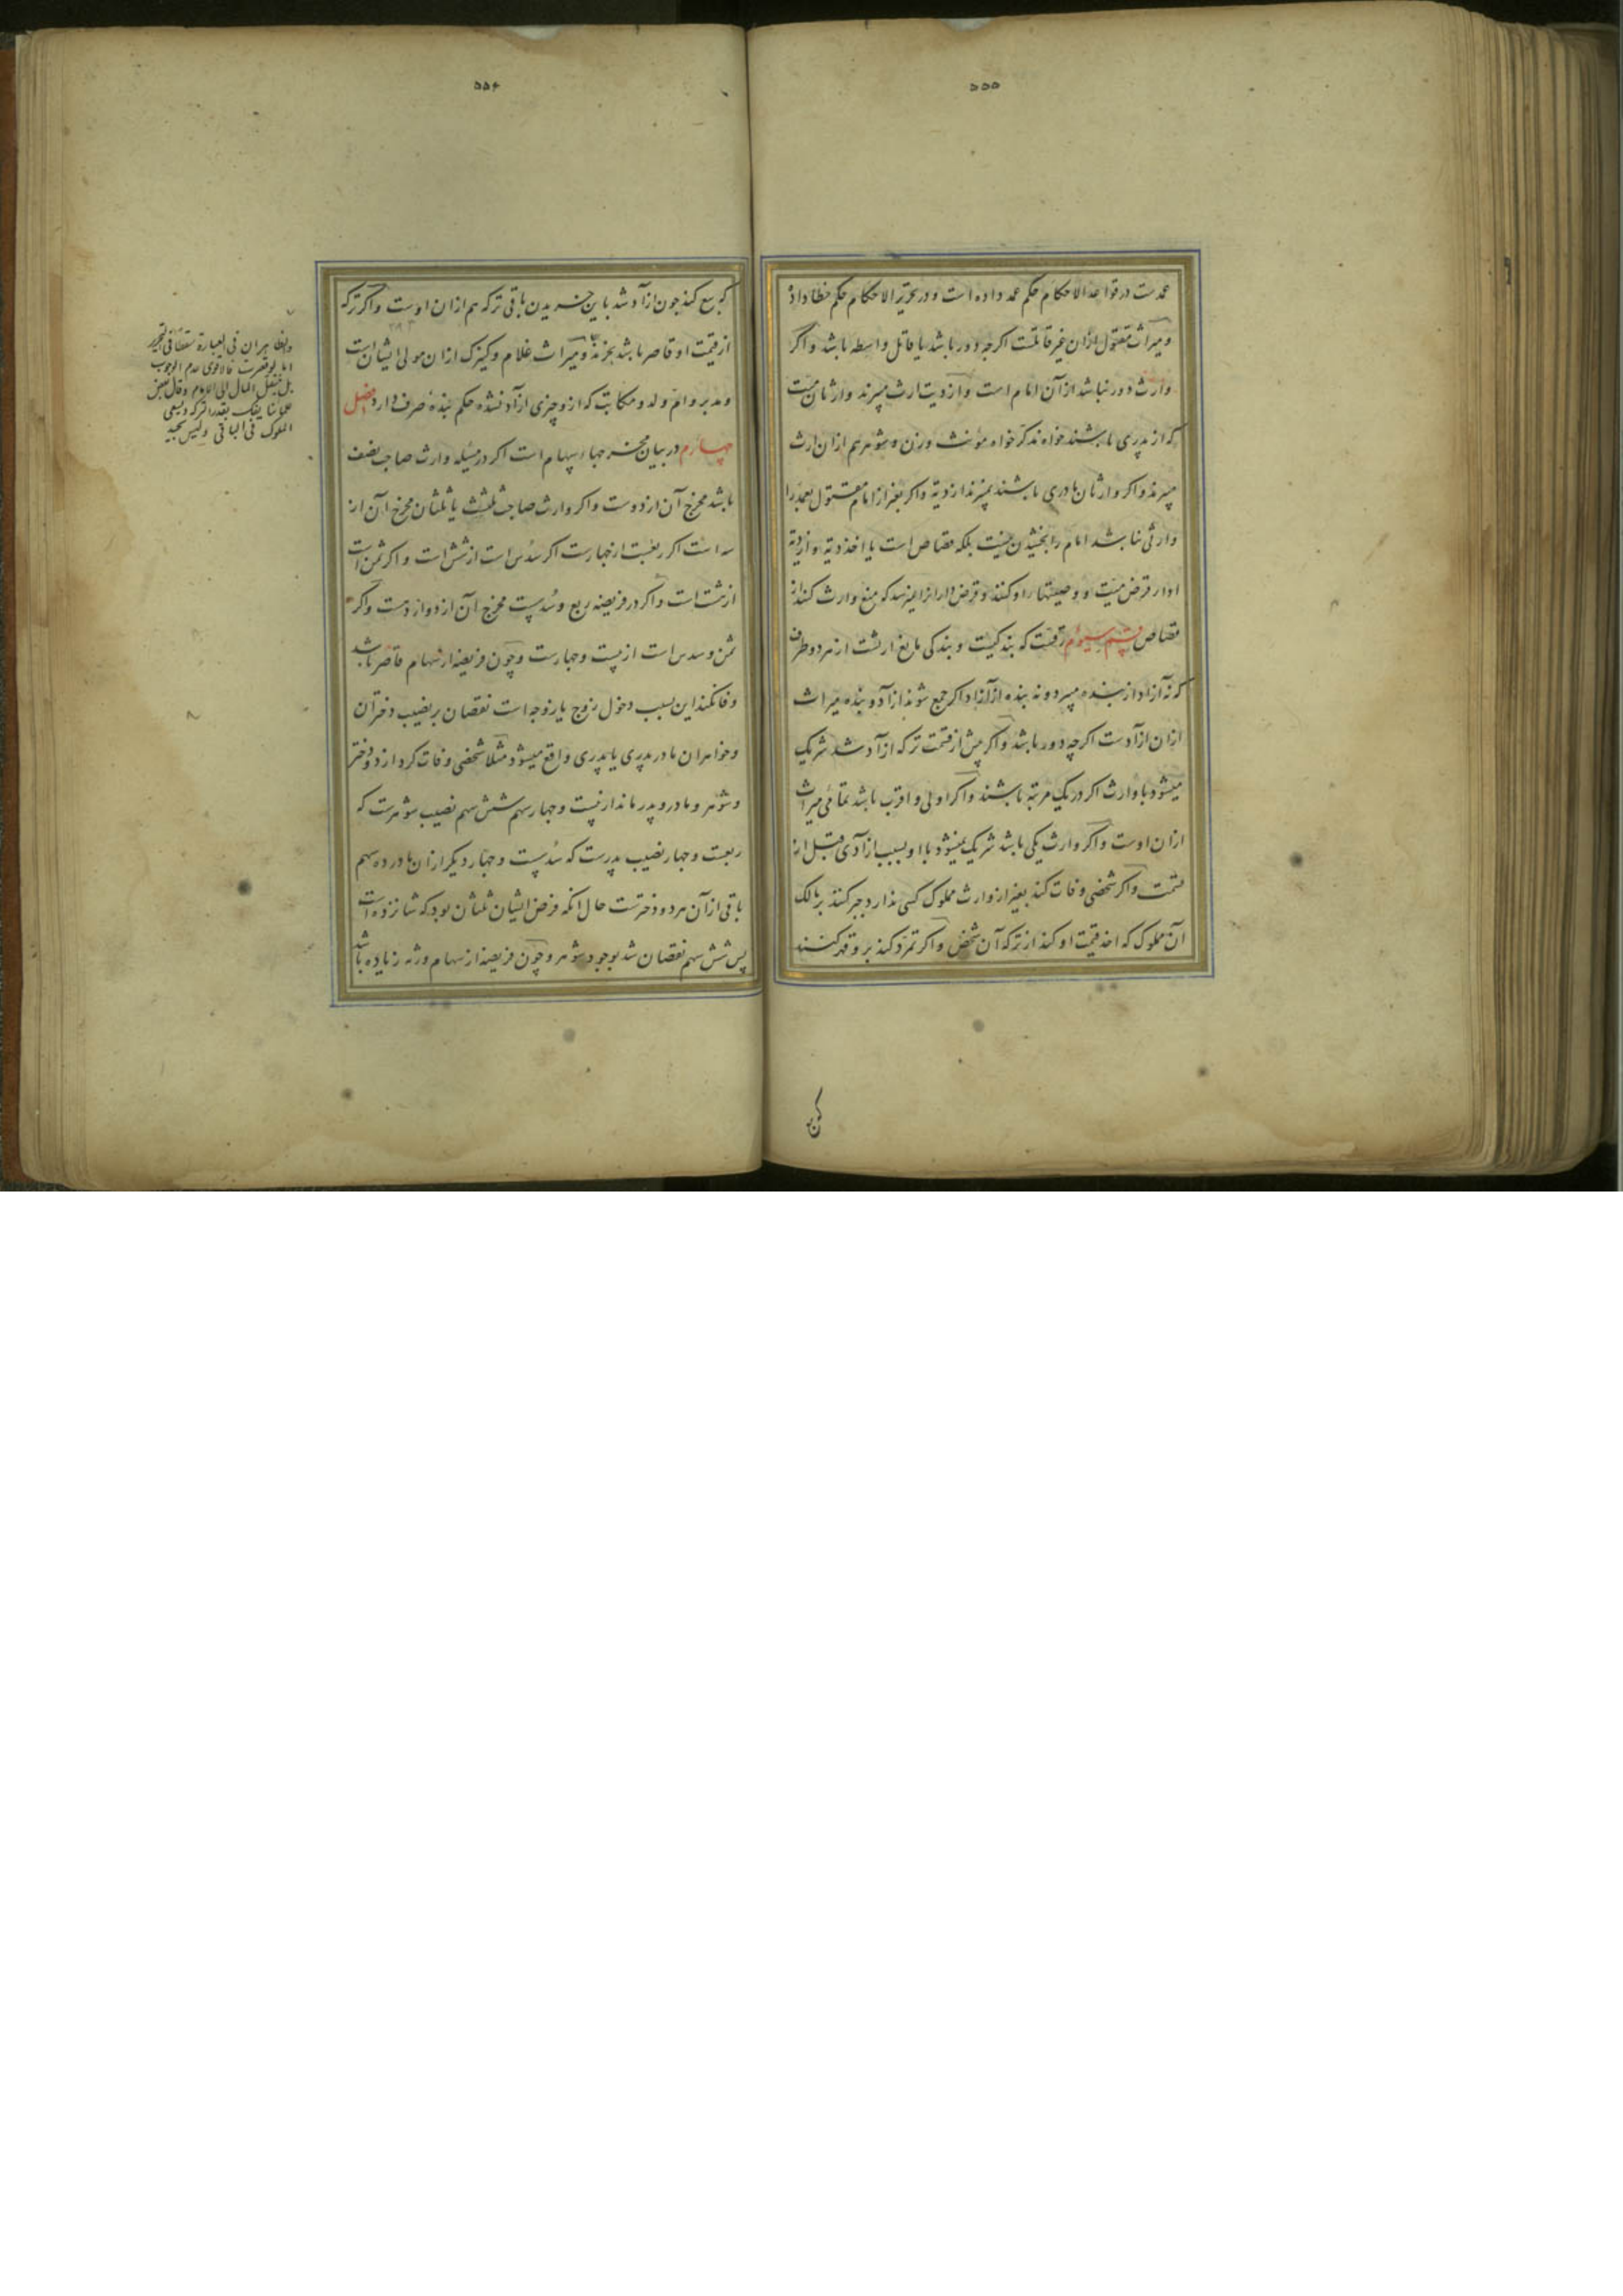 ۵۵۵
عمدست در قواعد الاحکام حکم عمد داده است و در تحریر الاحکام حکم خطا داده
و میراث مقتول ازان غیر قاتلست اکرچه دور باشد یا قاتل واسطه باشد و اکر
وارث دور نباشد ازآن امام است و از دیت ارث میبرند وارثان میت
که از پدری باشند خواه مذکر خواه مؤنث و زن و شوهر هم ازان ارث
میبرند و اکر وارثان مادری باشند نمیبرند از دیة و اکر بغیر از امام مقتول بعمد را
وارثی نباشد امام را بخشیدن نیست بلکه قصاص است یا اخذ دیة و از دیة
او از قرض میت او و وصیتها را و کنند و قرض داران را نمیرسد که منع وارث کنند از
قصاص قسم سیوم رقیت که بندکیست و بندکی مانع ارثست از هر دو طرف
که نه آزاد از بنده میبرد و نه بنده از آزاد اکر جمع شوند ازآد و بنده میراث
ازان ازآدست اکرچه دور باشد و اکر پیش از قسمت ترکه ازآد شد شریک
میشود با وارث اکر در یک مرتبه باشند و اکر اولی و اقرب باشد تمامی میراث
ازان اوست و اکر وارث یکی باشد شریک نمیشود با او بسبب ازآدی قبل از
قسمت و اکر شخصی وفات کند بغیر از وارث مملوک کسی ندارد جبر کنند بر مالک
آن مملوک که اخذ قیمت او کند از ترکه آن شخص و اکر تمرد کند بر و قهر کنند
که بیع
۵۵۶
که بیع کند چون ازآد شد باین خریدن باقی ترکه هم ازان اوست و اکر ترکه
از قیمت او قاصر باشد بخرند و میراث غلام و کنیزک ازان مولی ایشان است
و مدبر و ام ولد و مکاتب که ازو چیزی ازآد نشده حکم بنده صرف دارد فصل
چهارم در بیان مخرجهاء سهام است اکر در مسئله وارث صاحب نصف
باشد مخرج آن از دوست و اکر وارث صاحب ثلث یا ثلثان مخرج آن از
سه است اکر ربعست از چهارست اکر سدس است از شش است و اکر ثمن است
از هشت است و اکر در فریضه ربع و سدسست مخرج آن از دوازدست و اکر
ثمن و سدس است از بیست و چهارست و چون فریضه از سهام قاصر باشد
وفا نکند این بسبب دخول زوج یا زوجه است نقصان بر نصیب دختران
و خواهران مادر پدری یا پدری واقع میشود مثلا شخصی وفات کرد ازو دو دختر
و شوهر و مادر و پدر ماند از بیست و چهار سهم شش سهم نصیب شوهرست که
ربعست و چهار نصیب پدرست که سدسست و چهار دیکر ازان مادر ده سهم
باقی ازآن هر دو دخترست حال انکه فرض ایشان ثلثان بود که شانزده است
پس شش سهم نقصان شد بوجود شوهر و چون فریضه از سهام ورثه زیاده باشد
ان فی العبارة سقطا فی التحریر
اما لو قصرت فالاقوی عدم الوجوب
بل ینتقل المال الی الامام وقال بعض
علمائنا یفک بقدر الترکه ویسعی
المملوک فی الباقی ولیس بجید